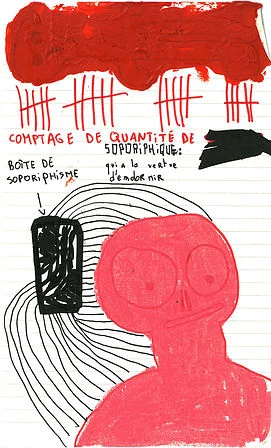 COMPTAGE DE QUANTITÉ DE
SOPORIPHIQUE:
qui a la vertue
d'endormir
BOÎTE DE
SOPORIPHISME